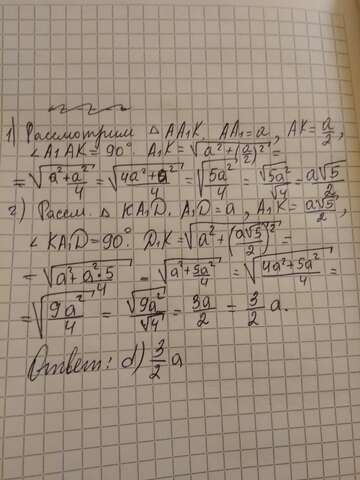 1) Рассмотрим △ AA₁K. AA₁ = a, AK = a/2,
∠ A₁AK = 90°. A₁K = √(a² + (a/2)²) =
= √(a² + a²/4) = √((4a² + a²)/4) = √(5a²/4) = √5a²/√4 = a√5/2
2) Рассм. △ KA₁D. A₁D = a, A₁K = a√5/2,
∠ KA₁D = 90°. D₁K = √(a² + (a√5/2)²) =
= √(a² + a²·5/4) = √(a² + 5a²/4) = √((4a² + 5a²)/4) =
= √(9a²/4) = √9a²/√4 = 3a/2 = 3/2 a.
Ответ: d) 3/2 a